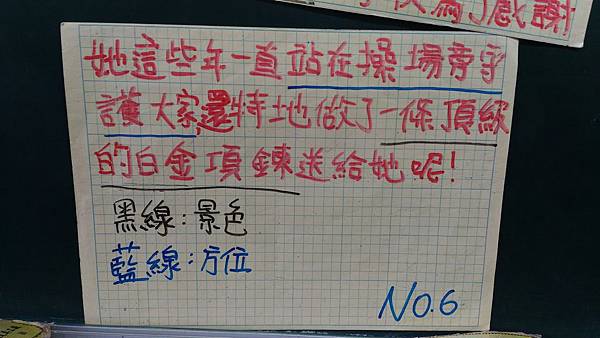 為了感謝
她這些年一直站在操場旁守
護大家,還特地做了一條頂級
的白金項鍊送給她呢!
黑線:景色
藍線:方位
NO.6